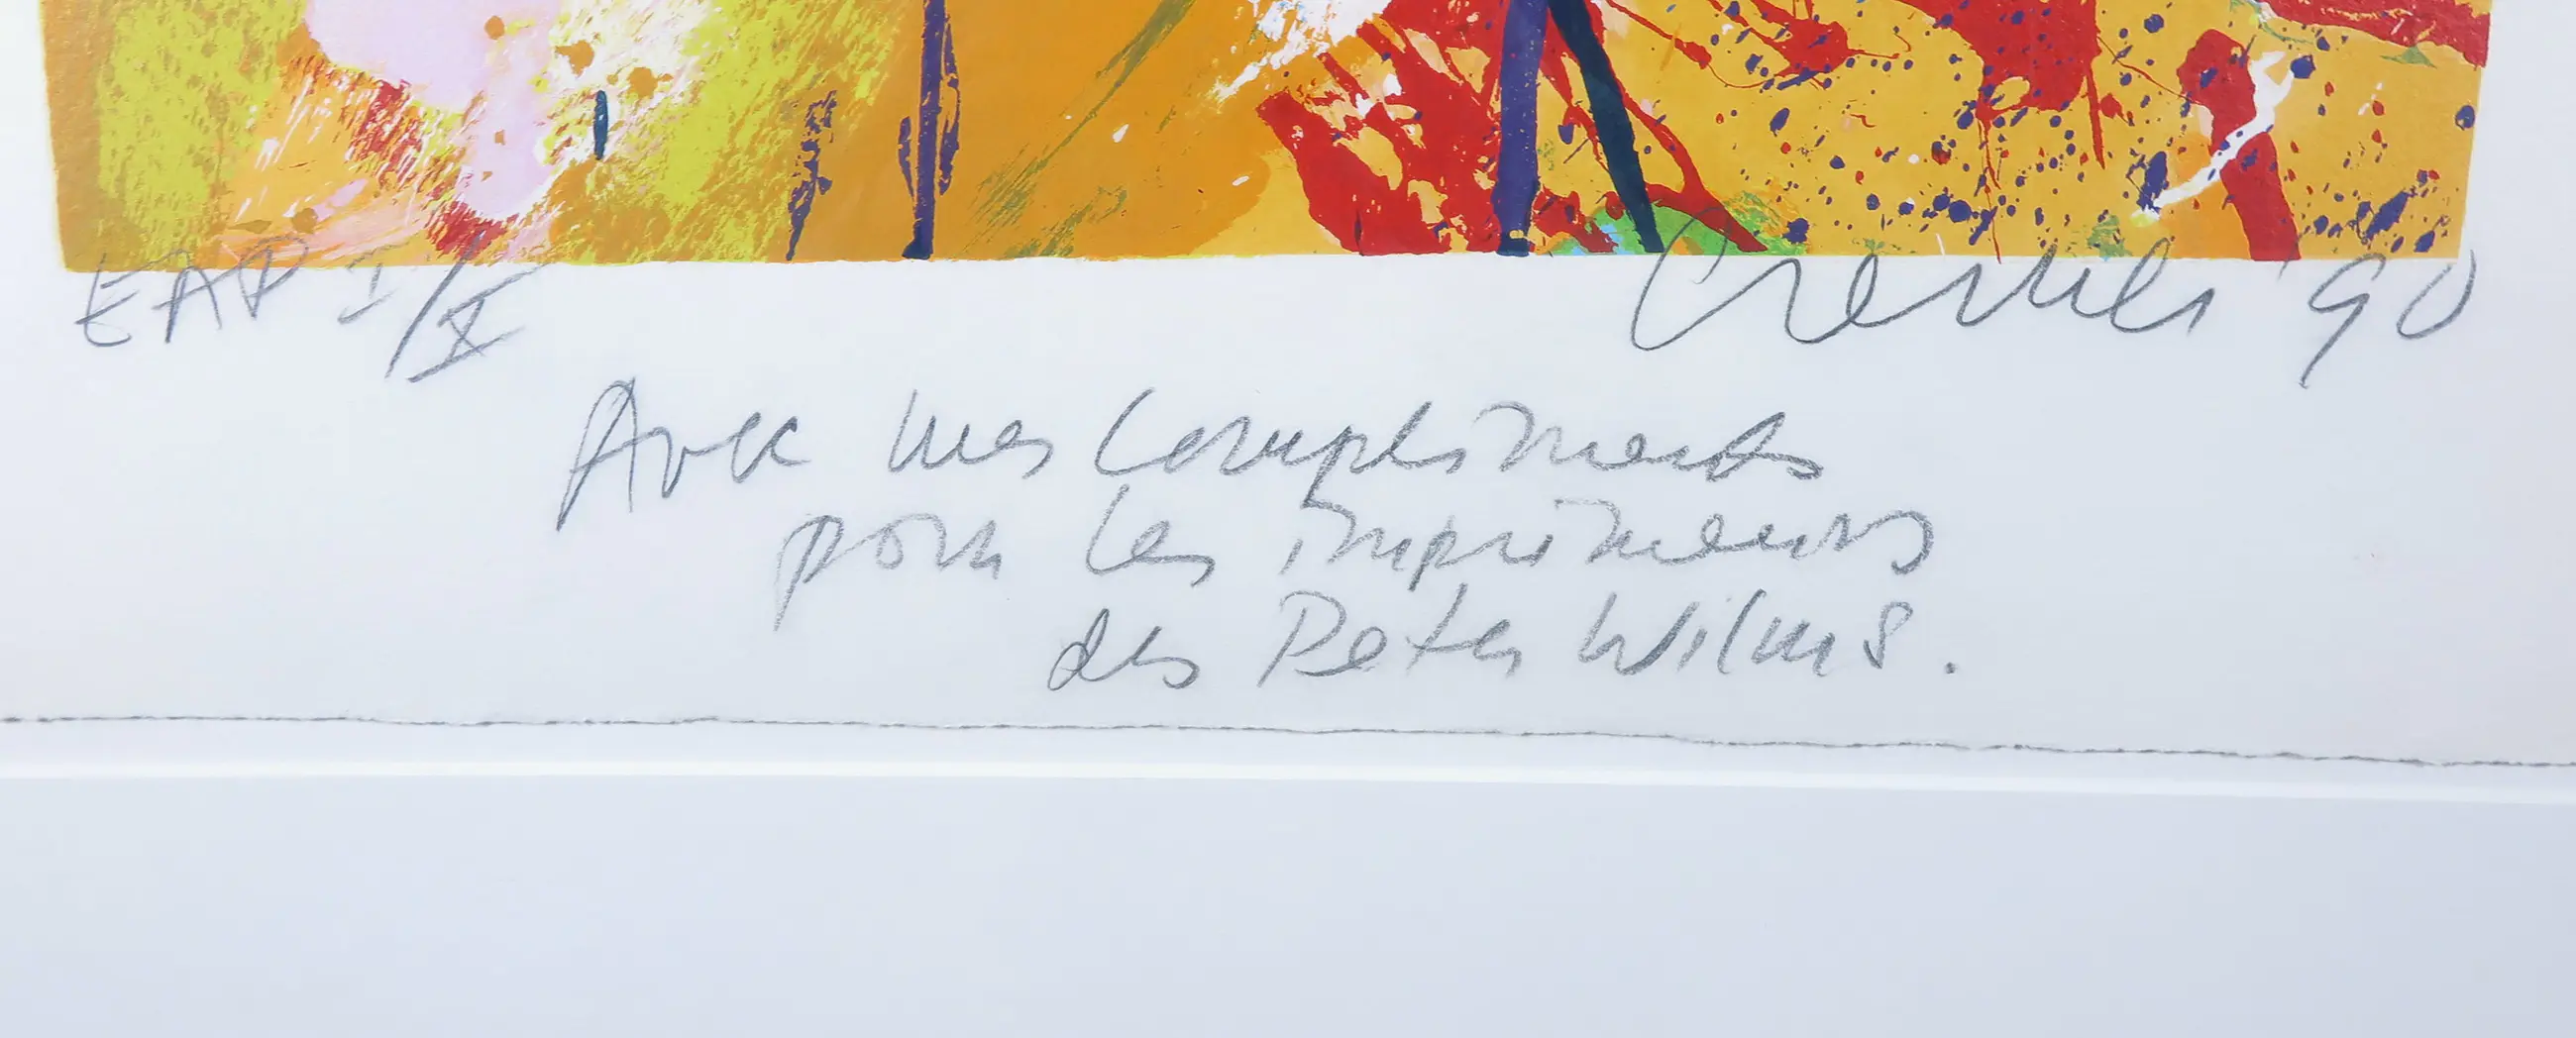 EAP I/X Cremer '90
Avec mes compliments
pour les imprimeurs
des Peter Wilms.